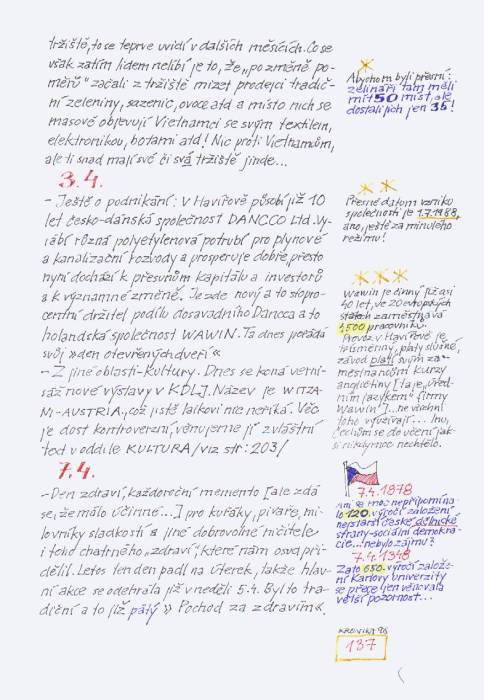 tržiště, to se teprve uvidí v dalších měsících. Co se
však zatím lidem nelíbí je to, že „po změně po-
měrů“ začali z tržiště mizet prodejci tradič-
ní zeleniny, sazenic, ovoce atd a místo nich se
masově objevují Vietnamci se svým textilem,
elektronikou, botami atd! Nic proti Vietnamům,
ale ti snad mají své či svá tržiště jinde...
3.4.
- Ještě o podnikání: V Havířově působí již 10
let česko-dánská společnost DANCCO Ltd. Vy-
rábí různá polyetylenová potrubí pro plynové
a kanalizační rozvody a prosperuje dobře, přesto
nyní dochází k přesunům kapitálu a investorů
a k významné změně. Je zde nový a to stopro-
centní držitel podílu dosavadního Dancca a to
holandská společnost WAWIN. Ta dnes pořádá
svůj »den otevřených dveří«
- Z jiné oblasti - kultury. Dnes se koná verni-
sáž nové výstavy v KDLJ. Název je WITZA-
NI-AUSTRIA, což jistě laikovi nic neříká. Věc
je dost kontroverzní, věnujeme jí zvláštní
text v oddíle KULTURA /viz str: 203/
7.4.
- Den zdraví, každoroční memento [ale zdá
se, že málo účinné...] pro kuřáky, pivaře, mi-
lovníky sladkostí a jiné dobrovolné ničitele
i toho chatrného „zdraví“, které nám osud při-
dělil. Letos ten den padl na úterek, takže hlav-
ní akce se odehrála již v neděli 5.4. Byl to tra-
diční a to již pátý » Pochod za zdravím«.
Abychom byli přesní:
zelináři tam měli
mít 50 míst, ale
dostali jich jen 35!
Přesné datum vzniku
společnosti je 1.7.1988,
ano, ještě za minulého
režimu!
Wawin je činný již asi
40 let, ve 20 evropských
státech zaměstnává
1500 pracovníků.
Provoz v Havířově je
třísměnný, platy slušné,
závod platí svým za-
městnancům kurzy
angličtiny [ta je „úřed-
ním jazykem“ firmy
Wawin“]... ne všichni
toho využívají... Inu,
Čechům se do učení jak-
si nikdy moc nechtělo.
7.4.1878
ani se moc nepřipomína-
lo 120. výročí založení
nejstarší české dělnické
strany - sociální demokra-
cie... nebylo zájmu?
7.4.1348
Zato 650. výročí založe-
ní Karlovy univerzity
se přece jen věnovala
větší pozornost...
KRONIKA 98
137